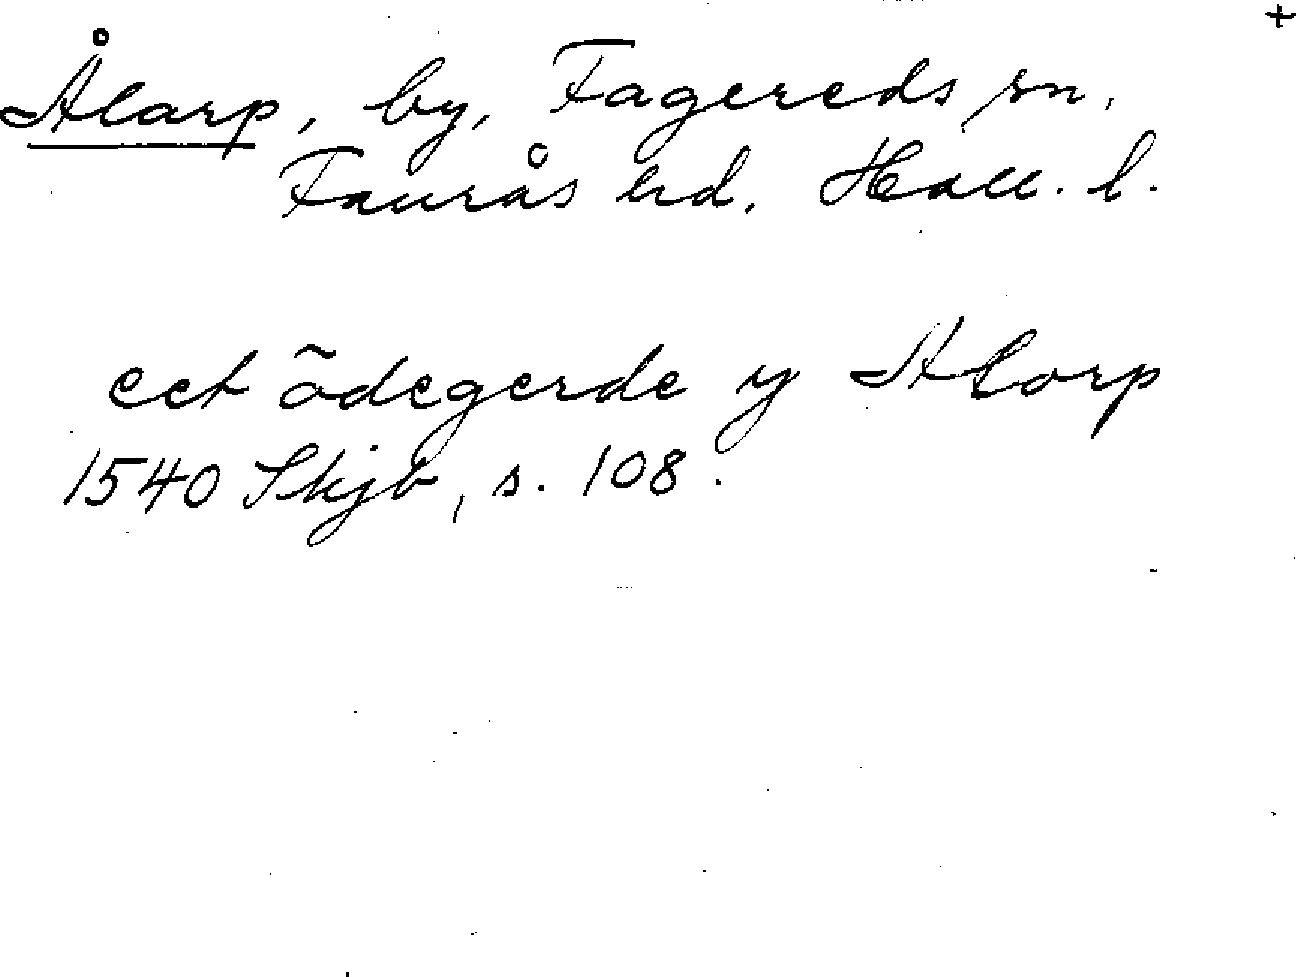 +
Ålarp, by, Fagereds sn,
Faurås hd, Hall. l.
eet õdegerde y Alorp
1540 Skjb, s. 108.